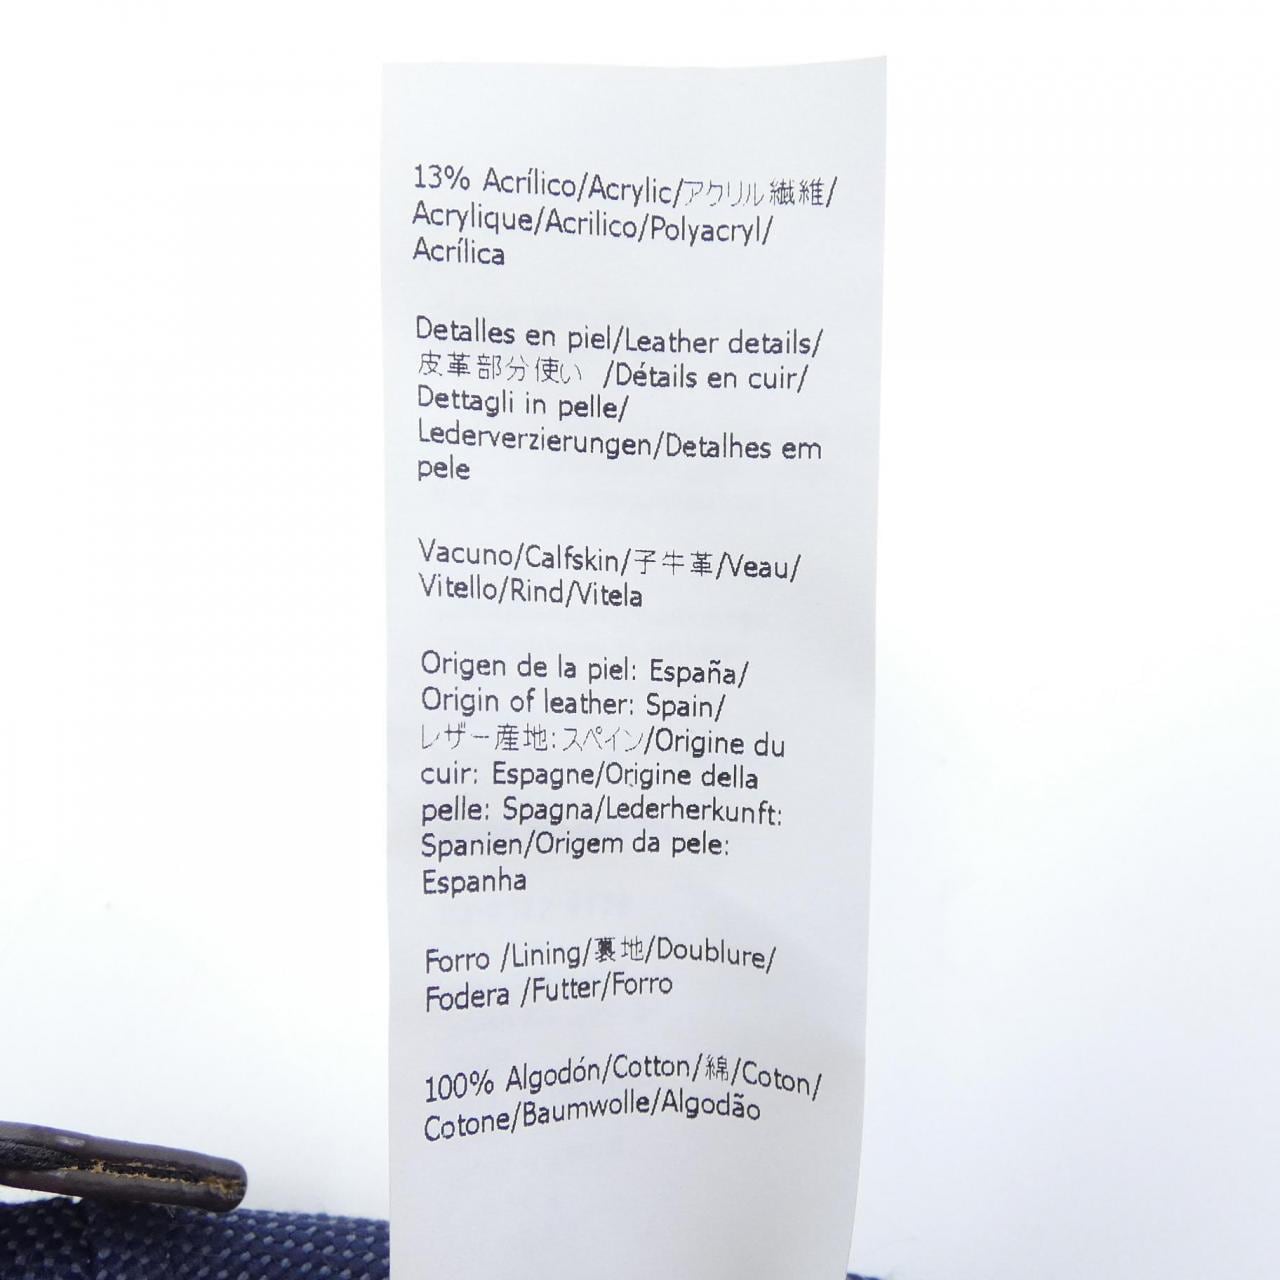 13% Acrílico/Acrylic/アクリル繊維/
Acrylique/Acrilico/Polyacryl/
Acrílica
Detalles en piel/Leather details/
皮革部分使い /Détails en cuir/
Dettagli in pelle/
Lederverzierungen/Detalhes em
pele
Vacuno/Calfskin/子牛革/Veau/
Vitello/Rind/Vitela
Origen de la piel: España/
Origin of leather: Spain/
レザー産地:スペイン/Origine du
cuir: Espagne/Origine della
pelle: Spagna/Lederherkunft:
Spanien/Origem da pele:
Espanha
Forro /Lining/裏地/Doublure/
Fodera /Futter/Forro
100% Algodón/Cotton/綿/Coton/
Cotone/Baumwolle/Algodão